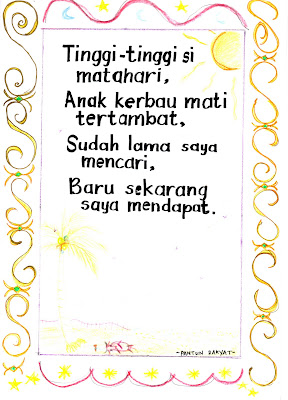 Tinggi-tinggi si
matahari,
Anak kerbau mati
tertambat,
Sudah lama saya
mencari,
Baru sekarang
saya mendapat.
-PANTUN RAKYAT-